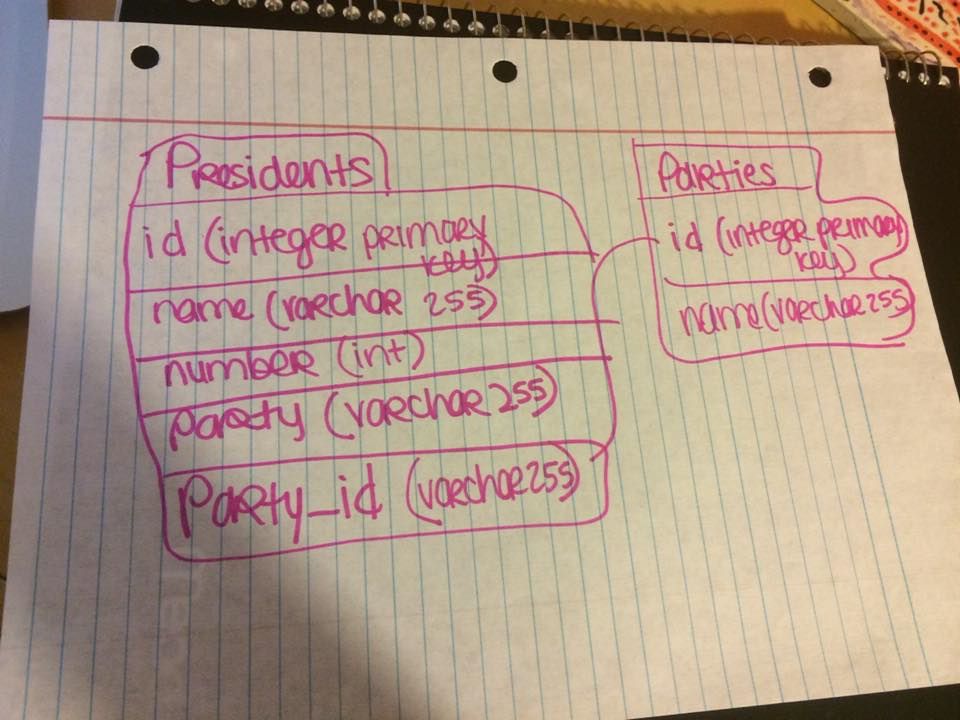 Presidents
id (integer primary
key)
name (varchar 255)
number (int)
party (varchar 255)
Party_id (varchar 255)
Parties
id (integer primary
key)
name (varchar 255)